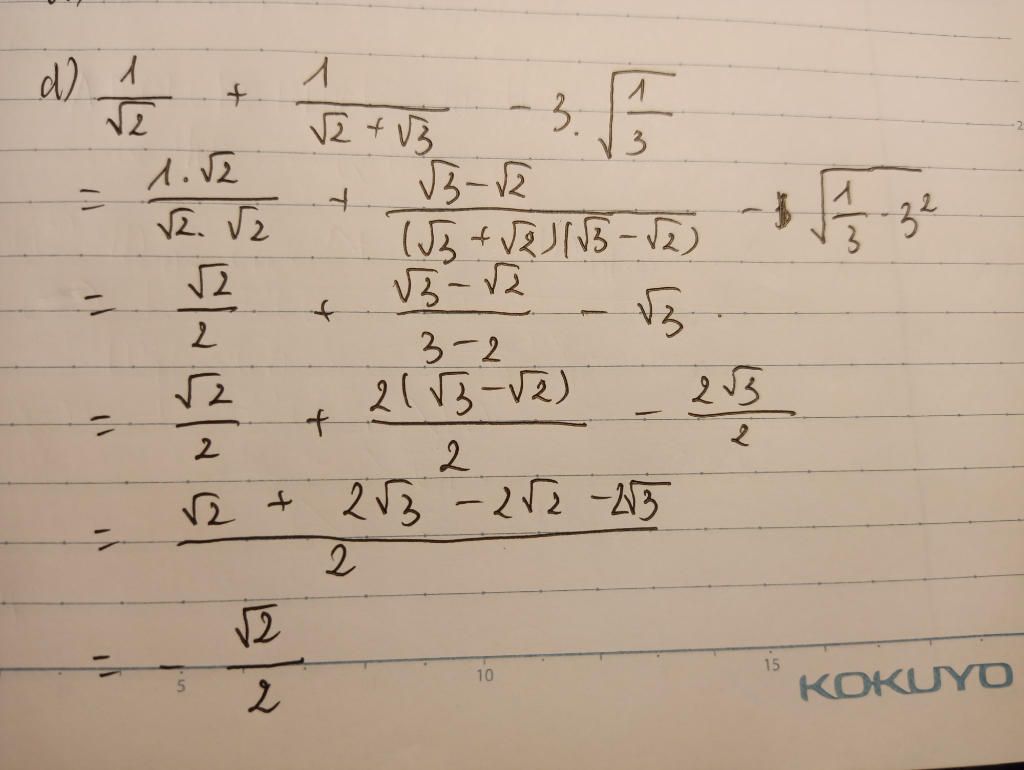 d) 1/√2 + 1/(√2 + √3) - 3.√(1/3)
= (1.√2)/(√2.√2) + (√3-√2)/((√3+√2)(√3-√2)) - √(1/3 . 3²)
= √2/2 + (√3-√2)/(3-2) - √3.
= √2/2 + 2(√3-√2)/2 - 2√3/2
= (√2 + 2√3 - 2√2 - 2√3)/2
= - √2/2
2
5 10 15 KOKUYO